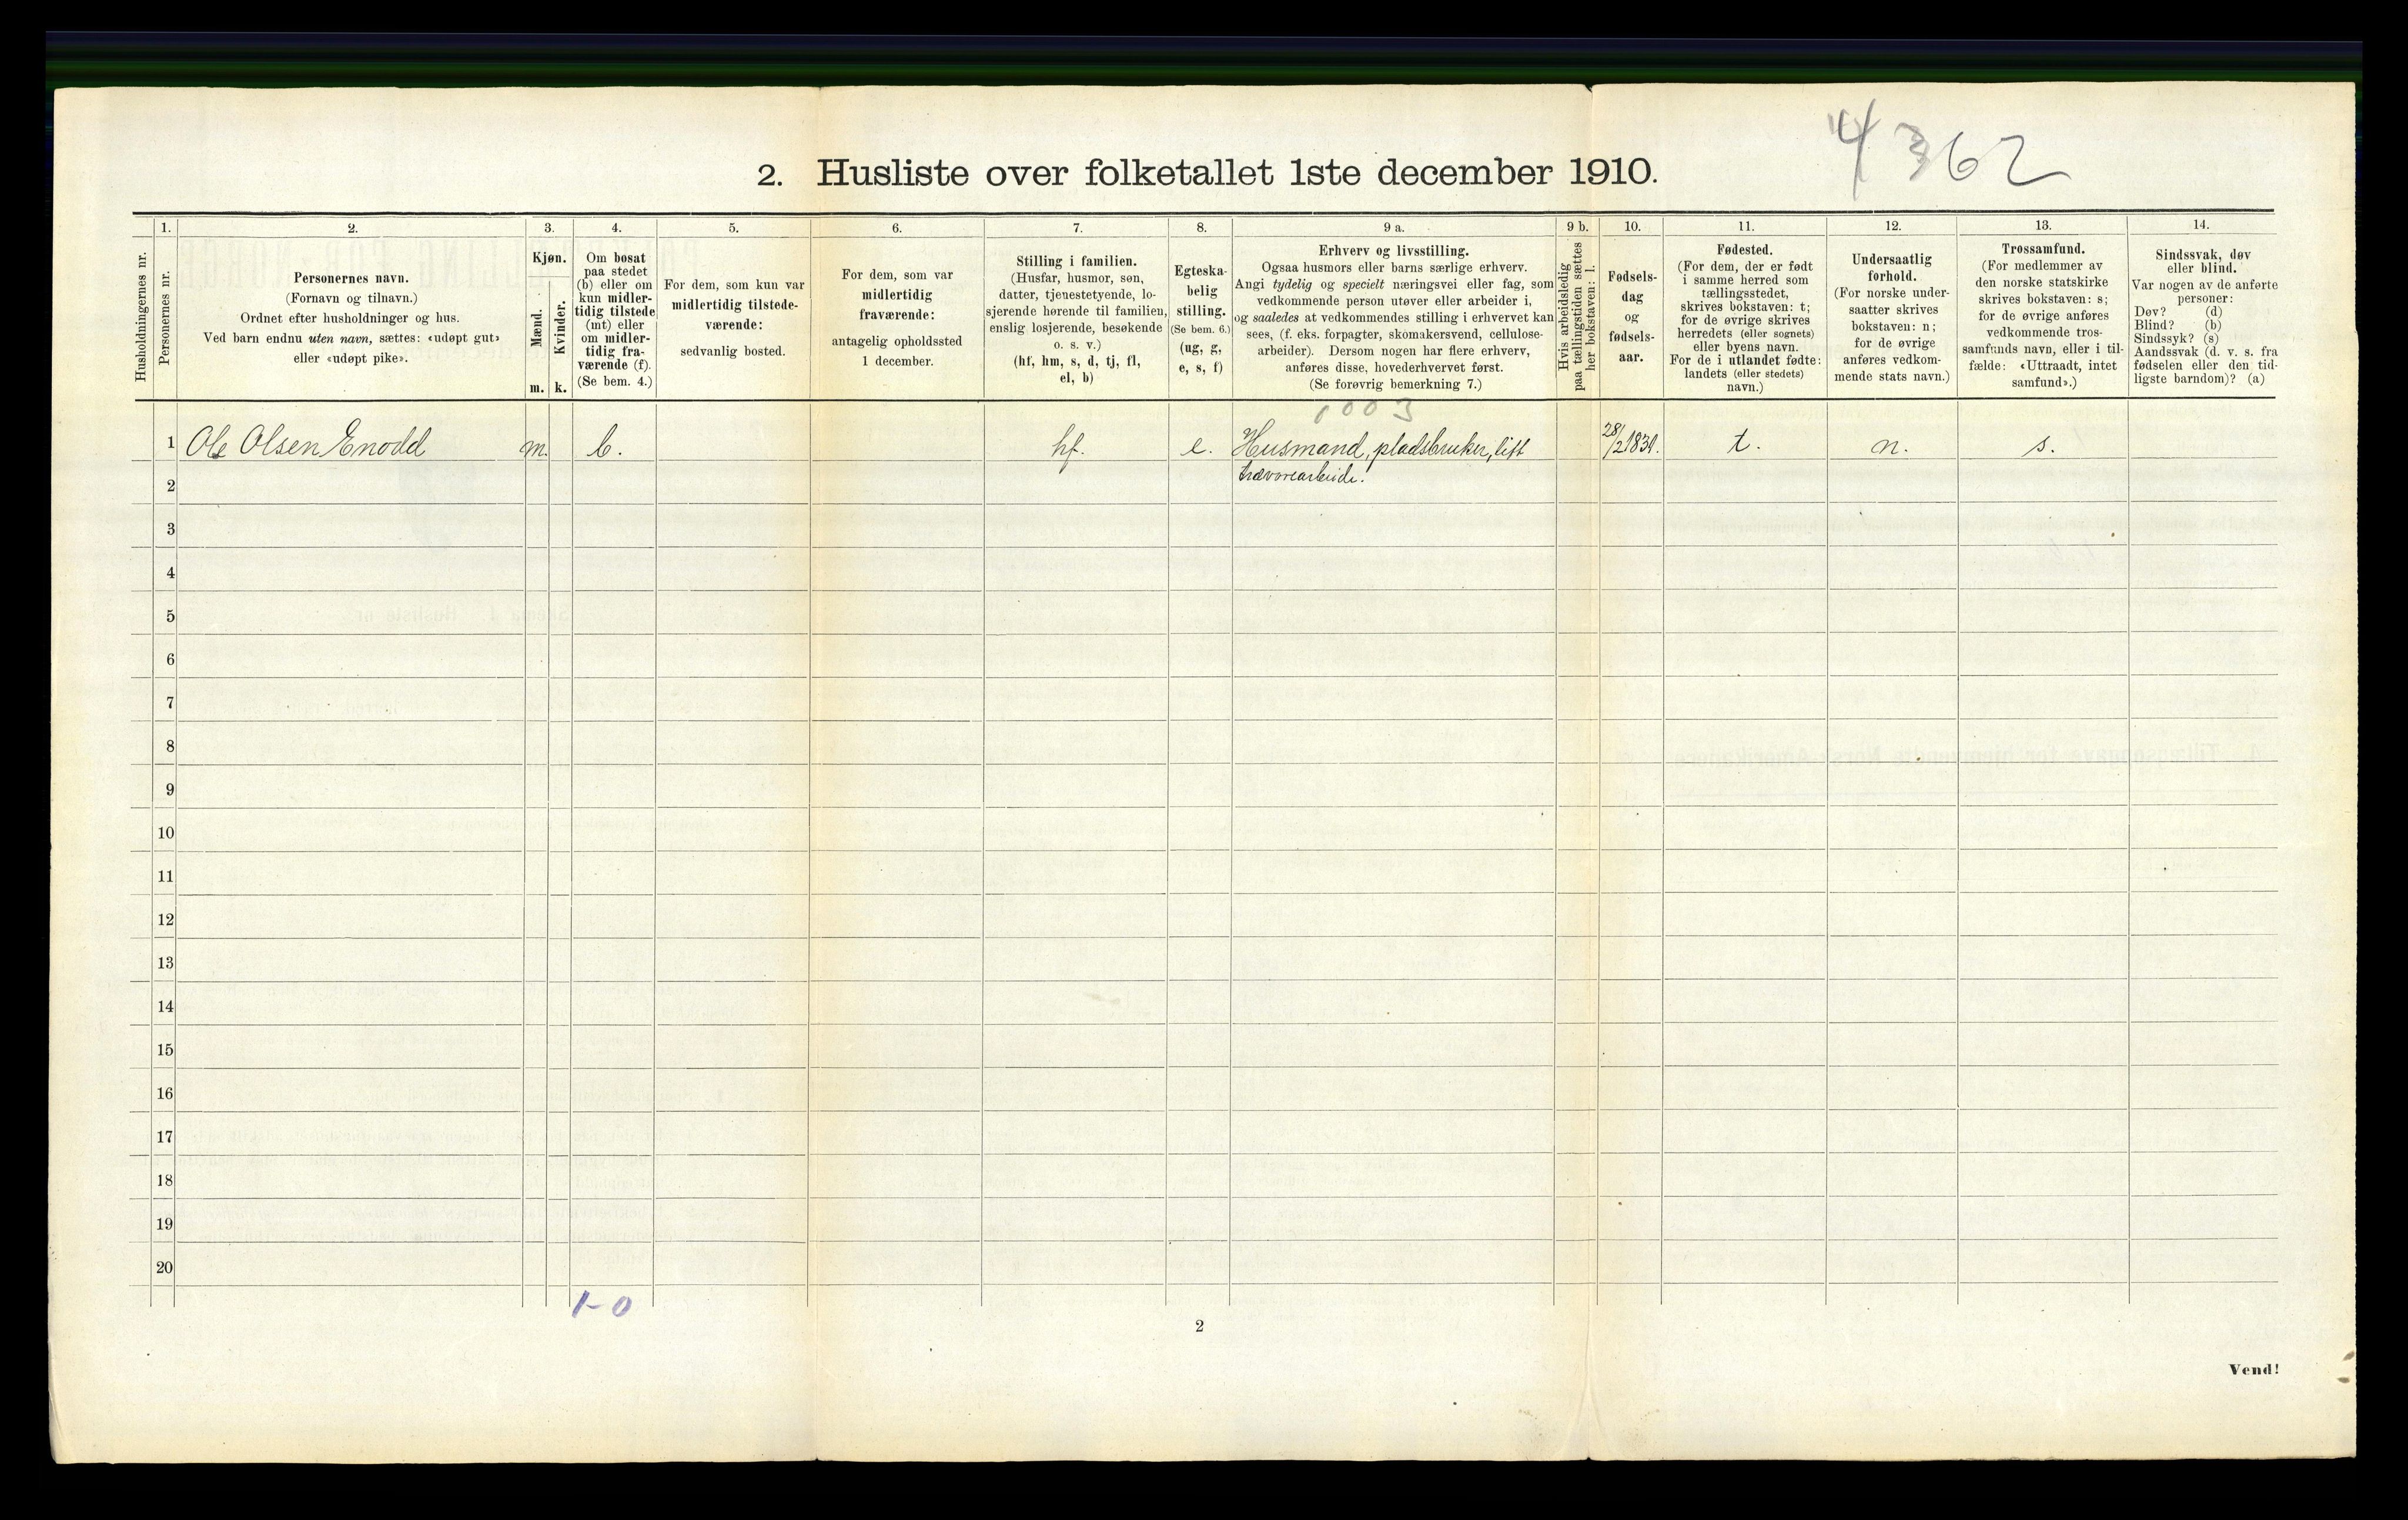 4362
2. Husliste over folketallet 1ste december 1910.
Husholdningernes nr.
1.
Personernes nr.
2.
Personernes navn.
(Fornavn og tilnavn.)
Ordnet efter husholdninger og hus.
Ved barn endnu uten navn, sættes: «udøpt gut»
eller «udøpt pike».
3.
Kjøn.
Mænd.
Kvinder.
m. k.
4.
Om bosat
paa stedet
(b) eller om
kun midler-
tidig tilstede
(mt) eller
om midler-
tidig fra-
værende (f).
(Se bem. 4.)
5.
For dem, som kun var
midlertidig tilstede-
værende:
sedvanlig bosted.
6.
For dem, som var
midlertidig
fraværende:
antagelig opholdssted
1 december.
7.
Stilling i familien.
(Husfar, husmor, søn,
datter, tjenestetyende, lo-
sjerende hørende til familien,
enslig losjerende, besøkende
o. s. v.)
(hf, hm, s, d, tj, fl,
el, b)
8.
Egteska-
belig
stilling.
(Se bem. 6.)
(ug, g,
e, s, f)
9 a.
Erhverv og livsstilling.
Ogsaa husmors eller barns særlige erhverv.
Angi tydelig og specielt næringsvei eller fag, som
vedkommende person utøver eller arbeider i,
og saaledes at vedkommendes stilling i erhvervet kan
sees, (f. eks. forpagter, skomakersvend, cellulose-
arbeider). Dersom nogen har flere erhverv,
anføres disse, hovederhvervet først.
(Se forøvrig bemerkning 7.)
9 b.
Hvis arbeidsledig
paa tællingstiden sættes
her bokstaven: l.
10.
Fødsels-
dag
og
fødsels-
aar.
11.
Fødested.
(For dem, der er født
i samme herred som
tællingsstedet,
skrives bokstaven: t;
for de øvrige skrives
herredets (eller sognets)
eller byens navn.
For de i utlandet fødte:
landets (eller stedets)
navn.)
12.
Undersaatlig
forhold.
(For norske under-
saatter skrives
bokstaven: n;
for de øvrige
anføres vedkom-
mende stats navn.)
13.
Trossamfund.
(For medlemmer av
den norske statskirke
skrives bokstaven: s;
for de øvrige anføres
vedkommende tros-
samfunds navn, eller i til-
fælde: «Uttraadt, intet
samfund».)
14.
Sindssvak, døv
eller blind.
Var nogen av de anførte
personer:
Døv? (d)
Blind? (b)
Sindssyk? (s)
Aandssvak (d. v. s. fra
fødselen eller den tid-
ligste barndom)? (a)
1003
1 Ole Olsen Enodd m. b. hf. e. Husmand, pladsbruker, litt 28/2 1830. t. n. s.
2 trævarearbeide.
3
4
5
6
7
8
9
10
11
12
13
14
15
16
17
18
19
20
1-0
2
Vend!